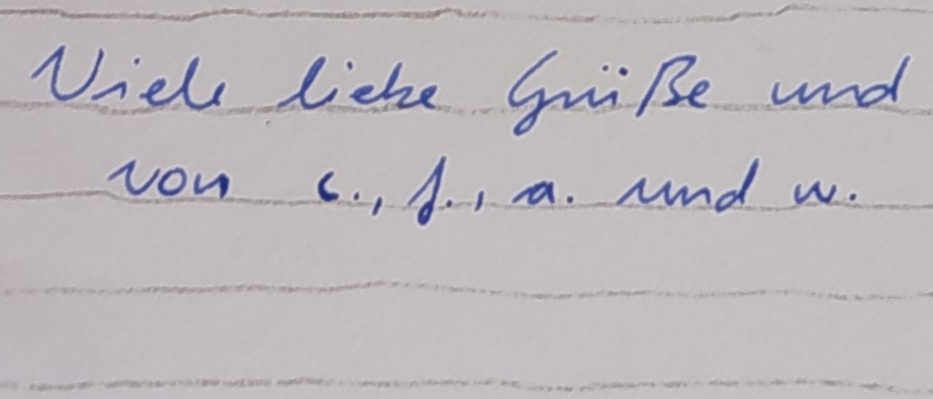 Viele liebe Grüße und
von c., f., a. und w.